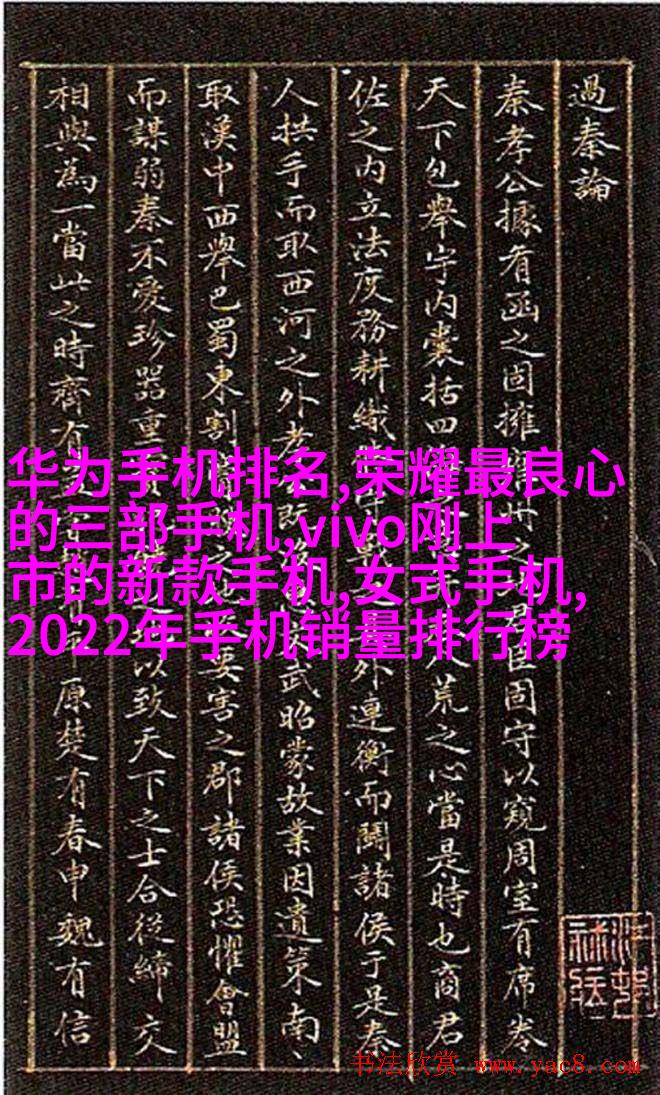 過秦論
秦孝公據有函之固擁州之君臣固守以窺周室有席卷
天下包舉宇内囊括四荒之心當是時也商君
佐之内立法度務耕織外連衡而鬭諸侯于是秦
人拱手而取西河之外孝既武昭蒙故業因遺策南、
取漢中西舉巴蜀東割之要害之郡諸侯恐懼會盟
而謀弱秦不愛珍器重以致天下之士合從締交
相與為一當此之時齊有原楚有春申魏有信
华为手机排名,荣耀最良心
的三部手机,vivo刚上
市的新款手机,女式手机,
2022年手机销量排行榜
书法欣赏 www.yac8.com